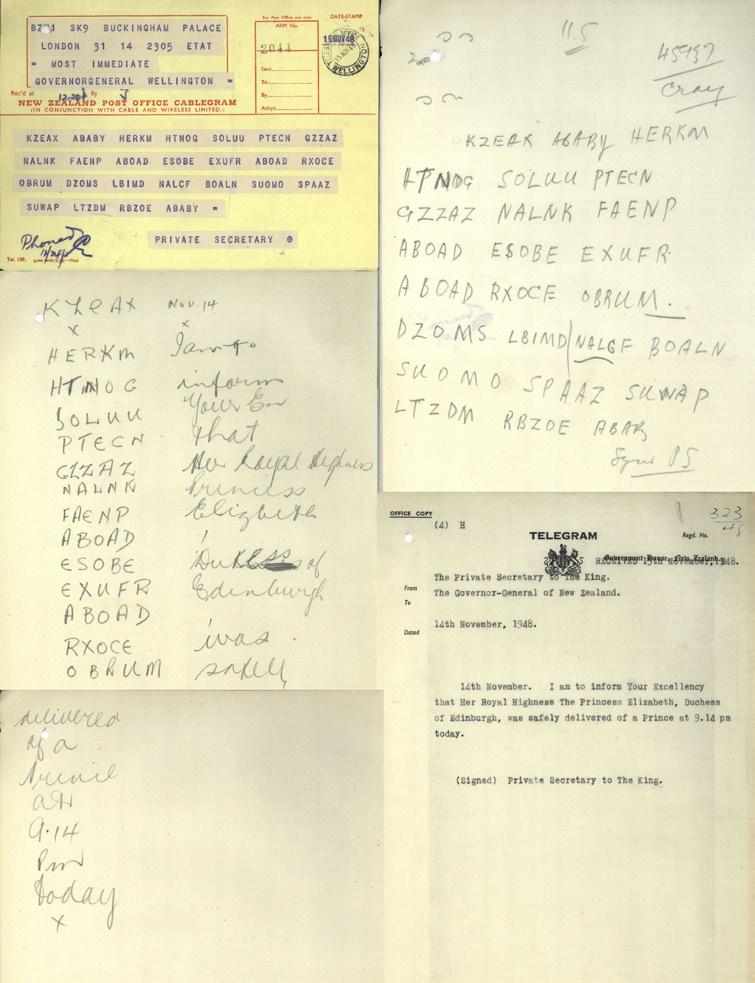 BZ71 SK9 BUCKINGHAM PALACE
LONDON 31 14 2305 ETAT
= MOST IMMEDIATE
GOVERNORGENERAL WELLINGTON =
For Post Office use only
ARM No.
2044
Sent
To
By
Ackgd.
DATE-STAMP
15NOV48
WELLINGTON
Rec'd at By
NEW ZEALAND POST OFFICE CABLEGRAM
(IN CONJUNCTION WITH CABLE AND WIRELESS LIMITED.)
KZEAX ABABY HERKM HTNOG SOLUU PTECN GZZAZ
NALNK FAENP ABOAD ESOBE EXUFR ABOAD RXOCE
OBRUM DZOMS LBIMD NALCF BOALN SUOMO SPAAZ
SUWAP LTZDM RBZOE ABABY =
PRIVATE SECRETARY
Phoned
Tel. 139.
115
45937
KZEAX ABABY HERKM
HTNOG SOLUU PTECN
GZZAZ NALNK FAENP
ABOAD ESOBE EXUFR
ABOAD RXOCE OBRUM.
DZOMS LBIMD NALGF BOALN
SUOMO SPAAZ SUWAP
LTZDM RBZOE ABAB
PS
KZEAX Nov 14
x x
HERKM I am to
HTNOG inform
SOLUU Your Ex
PTECN that
GZZAZ Her Royal Highness
NALNK Princess
FAENP Elizabeth
ABOAD ,
ESOBE Duchess of
EXUFR Edinburgh
ABOAD ,
RXOCE was
OBRUM safely
delivered
of a
Prince
at
9.14
Pm
today
x
OFFICE COPY
(4) H
323
TELEGRAM
Regd. No.
Government House, New Zealand
RECEIVED 15th November, 1948.
From The Private Secretary to The King.
To The Governor-General of New Zealand.
Dated 14th November, 1948.
14th November. I am to inform Your Excellency
that Her Royal Highness The Princess Elizabeth, Duchess
of Edinburgh, was safely delivered of a Prince at 9.14 pm
today.
(Signed) Private Secretary to The King.